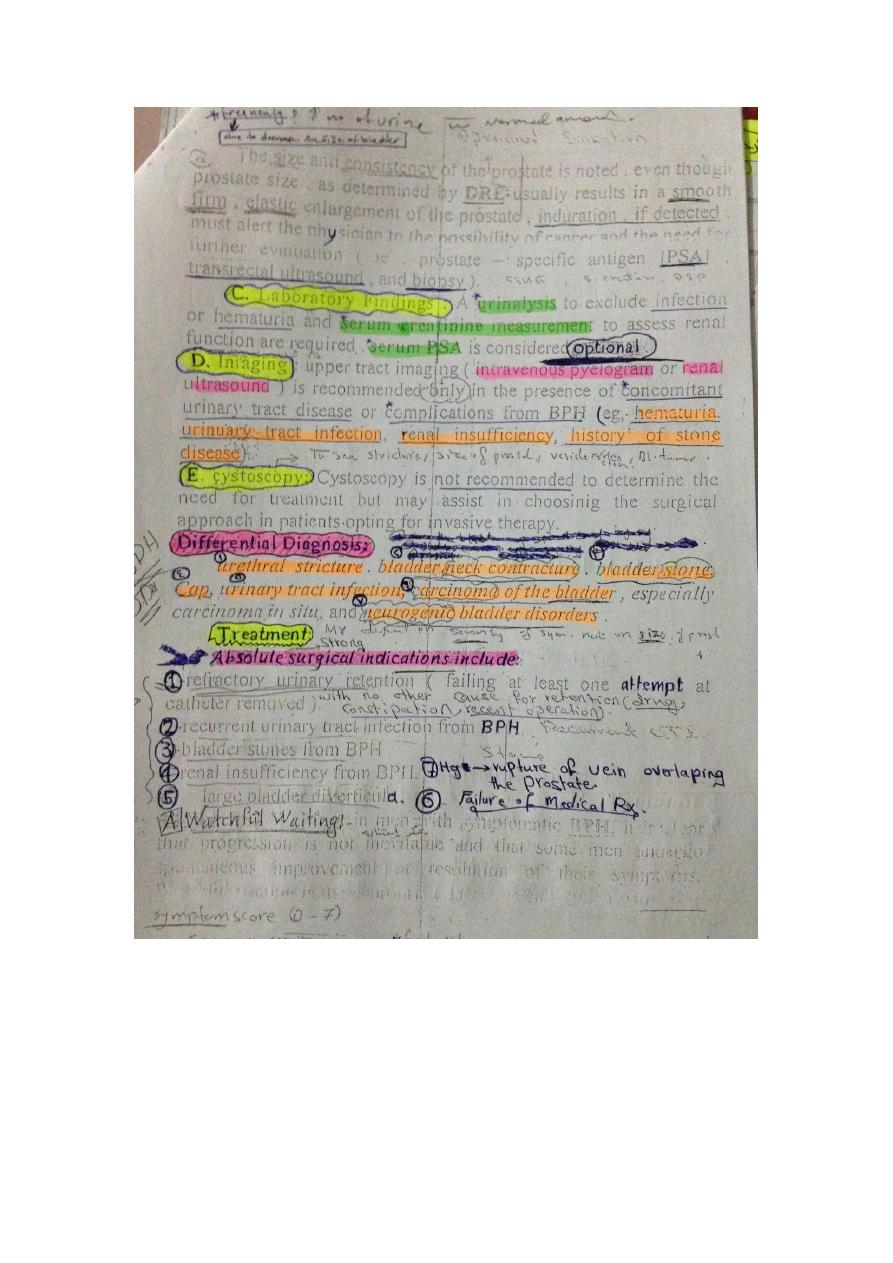 *Frequency: ↑ no of urine normal amount.
due to decrease the size of bladder
The size and consistency of the prostate is noted . even though
prostate size . as determined by DRE usually results in a smooth
firm , elastic enlargement of the prostate , induration , if detected .
must alert the physician to the possibility of cancer and the need for
further evaluation ( ie . prostate – specific antigen [PSA] .
transrectal ultrasound , and biopsy ).
C. Laboratory Findings . A *urinalysis to exclude infection
or hematuria and *serum creatinine measurement to assess renal
function are required . *serum PSA is considered optional .
D. Imaging : upper tract imaging ( intravenous pyelogram or renal
ultrasound ) is recommended only in the presence of *concomitant
urinary tract disease or *complications from BPH (eg,. hematuria.
urinuary tract infection, renal insufficiency, history of stone
disease). → To see stricture, size of prostd, Bl. tumor .
E. cystoscopy: Cystoscopy is not recommended to determine the
need for treatment but may assist in choosinig the surgical
approach in patients opting for invasive therapy.
Differential Diagnosis:
urethral stricture . bladder neck contracture . bladder stone.
Cap, urinary tract infection, carcinoma of the bladder , especially
carcinoma in situ, and neurogenic bladder disorders .
Treatment: depend on severity of sym. not on size of prost
Strong
Absolute surgical indications include:
① refractory urinary retention ( failing at least one attempt at
catheter removed ). with no other cause for retention (drugs,
constipation, recent operation).
② recurrent urinary tract infection from BPH. Recurrent
③ bladder stones from BPH .
④ renal insufficiency from BPH. ⑦ Hge → rupture of vein overlaping
the prostate.
⑤ large bladder diverticula. ⑥ Failure of Medical Rx.
A/ Watchful Waiting: in men with symptomatic BPH, it is clear
that progression is not inevitable and that some men undergo
spontaneous improvement or resolution of their symptoms.
symptom score (0 – 7)